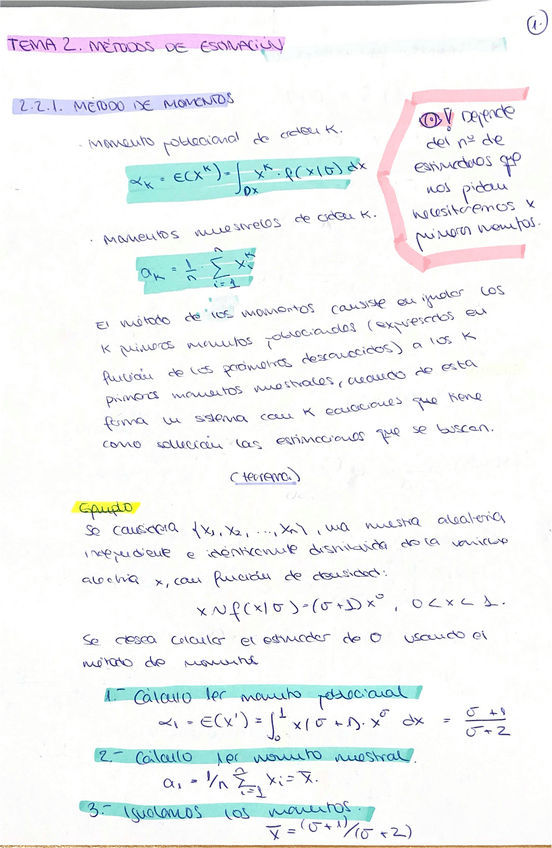 1.
TEMA 2. MÉTODOS DE ESTIMACIÓN
2.2.1. MÉTODO DE MOMENTOS
· Momento poblacional de orden K.
αK = E(X^K) = ∫_DX x^K · f(x|σ) dx
· Momentos muestrales de orden K.
aK = 1/n · Σ_{i=1}^{n} xi^K
¡O! Depende
del nº de
estimadores que
nos pidan
necesitaremos K
primeros momentos.
El método de los momentos consiste en igualar los
K primeros momentos poblacionales (expresados en
función de los parámetros desconocidos) a los K
primeros momentos muestrales, creando de esta
forma un sistema con K ecuaciones que tiene
como solución las estimaciones que se buscan.
(teorema)
Ejemplo
Se considera {x1, x2, ..., xn}, una muestra aleatoria
independiente e idénticamente distribuida de la variable
aleatoria x, con función de densidad:
x ~ f(x|σ) = (σ+1) x^σ, 0 < x < 1.
Se desea calcular el estimador de σ usando el
método de momentos
1.- Cálculo 1er momento poblacional
α1 = E(X') = ∫_0^1 x(σ+1) · x^σ dx = (σ+1)/(σ+2)
2.- Cálculo 1er momento muestral.
a1 = 1/n Σ_{i=1}^{n} xi = x̄.
3.- Igualamos los momentos.
x̄ = (σ+1)/(σ+2)